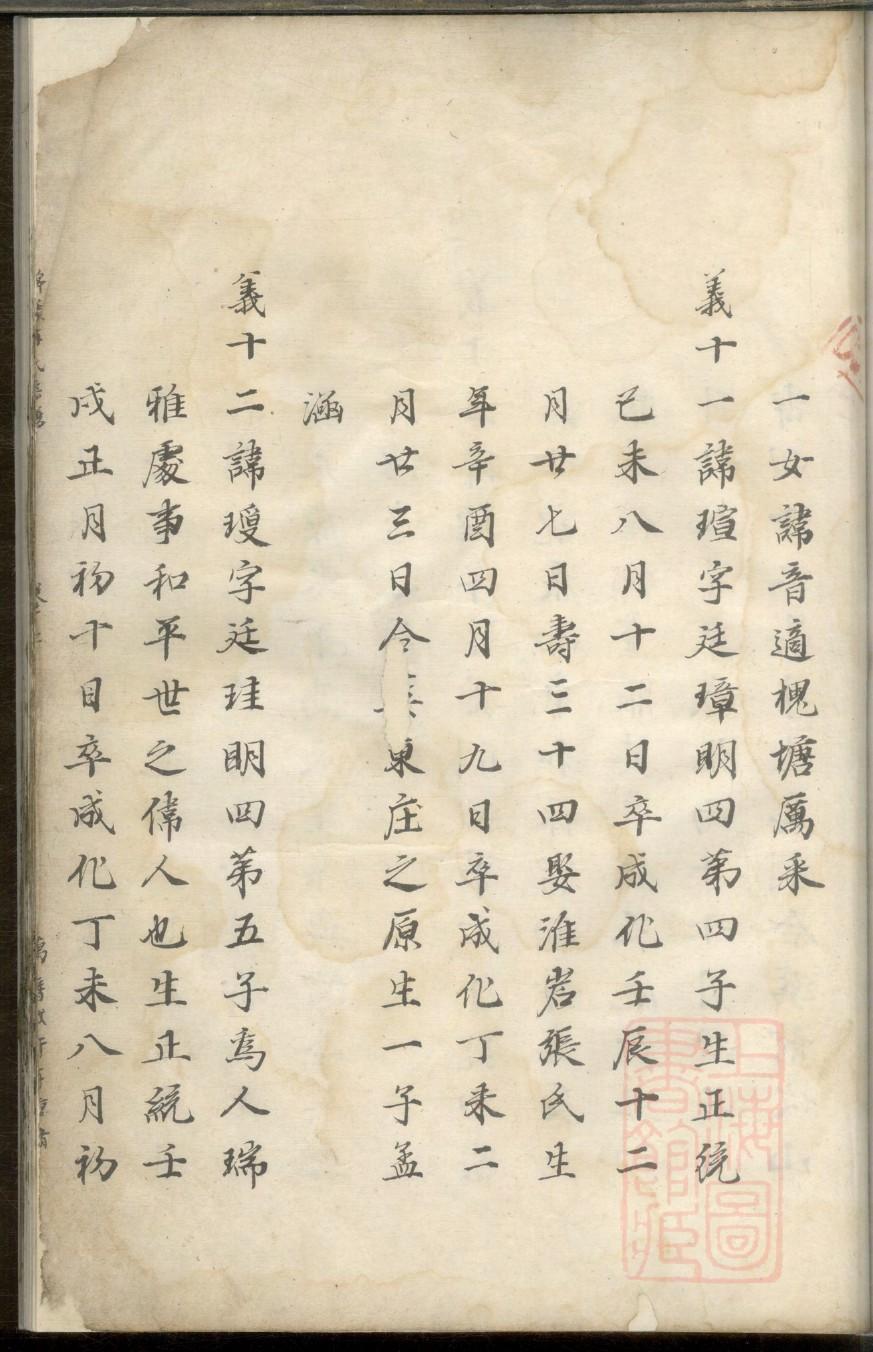 一女諱音適槐塘厲釆
義十一諱瑄字廷璋明四第四子生正统
己未八月十二日卒成化壬辰十二
月廿七日壽三十四娶淮岩張氏生
年辛酉四月十九日卒成化丁未二
月廿三日合葬東庄之原生一子孟
涵
義十二諱瓊字廷珪明四第五子為人瑞
雅處事和平世之偉人也生正統壬
戌正月初十日卒成化丁未八月初
上海圖書館藏